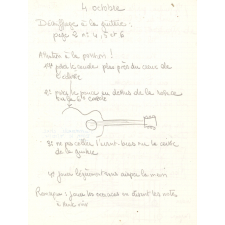 4 octobre
Déchiffrage à la guitare :
page 2 n° 4, 5 et 6
Attention à la position !
1° poser le coude plus près du creux de
l'éclisse
2° poser le pouce au dessus de la
sur la 6e corde
3° ne pas coller l'avant-bras ou le coude
de la guitare
4° jouer légèrement sans crisper la main
Remarque : jouer les morceaux en disant les notes
à voix